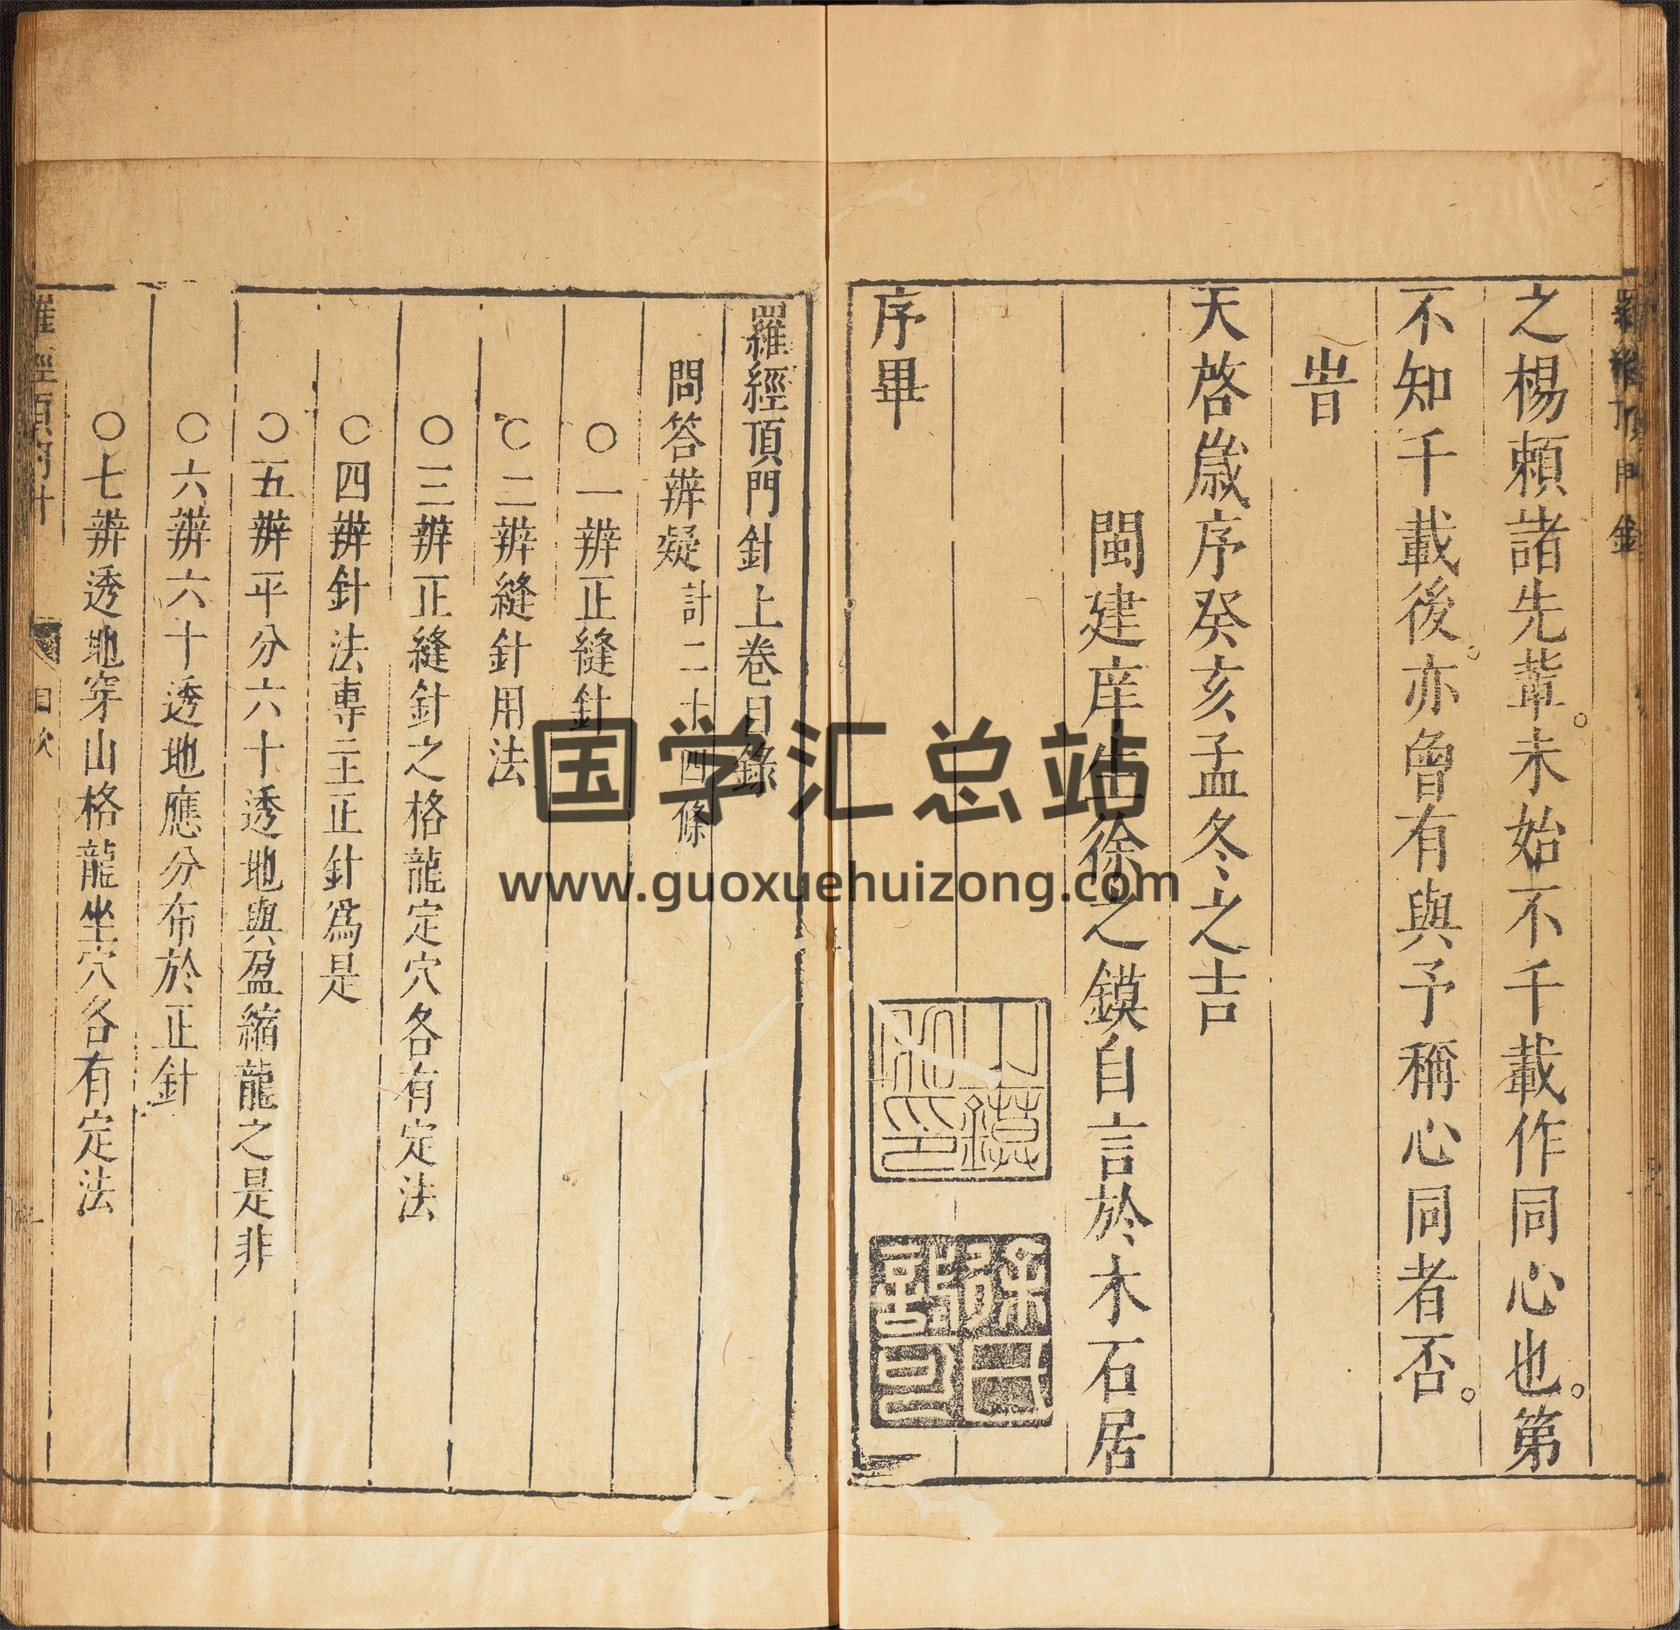 之楊賴諸先輩。未始不千載作同心也。第
不知千載後。亦曾有與予稱心同者否。
旹
天啓歲序癸亥孟冬之吉
閩建庠生徐之鏌自言於木石居
序畢
羅經頂門針上卷目錄
問答辨疑 計二十四條
○一辨正縫針
○二辨縫針用法
○三辨正縫針之格龍定穴各有定法
○四辨針法專主正針爲是
○五辨平分六十透地與盈縮龍之是非
○六辨六十透地應分布於正針
○七辨透地穿山格龍坐穴各有定法
羅經頂門針
目次
国学汇总站
www.guoxuehuizong.com